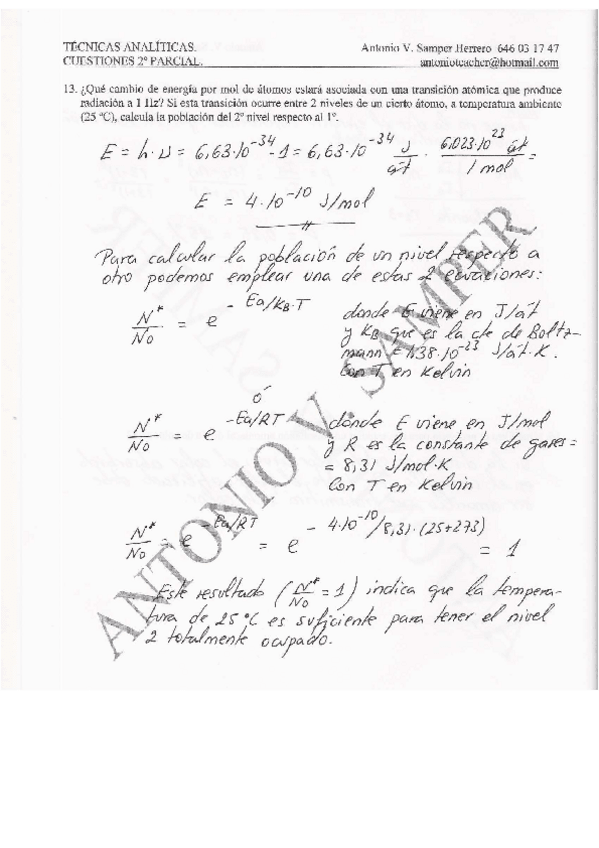 TÉCNICAS ANALÍTICAS. Antonio V. Samper Herrero 646 03 17 47
CUESTIONES 2º PARCIAL. antonioteacher@hotmail.com
13. ¿Qué cambio de energía por mol de átomos estará asociada con una transición atómica que produce
radiación a 1 Hz? Si esta transición ocurre entre 2 niveles de un cierto átomo, a temperatura ambiente
(25 ºC), calcula la población del 2º nivel respecto al 1º.
E = h·ν = 6,63·10⁻³⁴·1 = 6,63·10⁻³⁴ J/át · 6,023·10²³ át/1 mol =
E = 4·10⁻¹⁰ J/mol
Para calcular la población de un nivel respecto a
otro podemos emplear una de estas 2 ecuaciones:
N*/No = e^(-Ea/KB·T) donde E viene en J/át
y KB que es la cte de Boltz-
mann = 1,38·10⁻²³ J/át·K.
Con T en Kelvin
ó
N*/No = e^(-Ea/RT) dónde E viene en J/mol
y R es la constante de gases =
= 8,31 J/mol·K
Con T en Kelvin
N*/No = e^(-Ea/RT) = e^(-4·10⁻¹⁰/8,31·(25+273)) = 1
Este resultado (N*/No = 1) indica que la tempera-
tura de 25 ºC es suficiente para tener el nivel
2 totalmente ocupado.
ANTONIO V. SAMPER